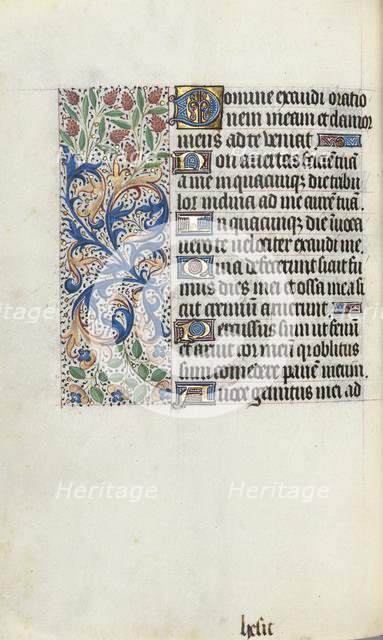 Domine exaudi oratio
nem meam et clamor
meus ad te veniat
Non avertas faciem tuā
a me in quacumq die tribu
lor inclina ad me aurem tuā.
In quacumq die invoca
vero te velociter exaudi me.
Quia defecerunt sicut fu
mus dies mei et ossa mea si
cut gremiū aruerunt
Percussus sum ut fenū
et aruit cor meū q oblitus
sum comedere panē meum.
A voce gemitus mei ad
hesit
Heritage
Heritage
Heritage
Heritage